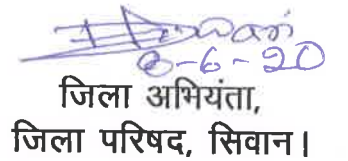 8-6-20
जिला अभियंता,
जिला परिषद, सिवान।